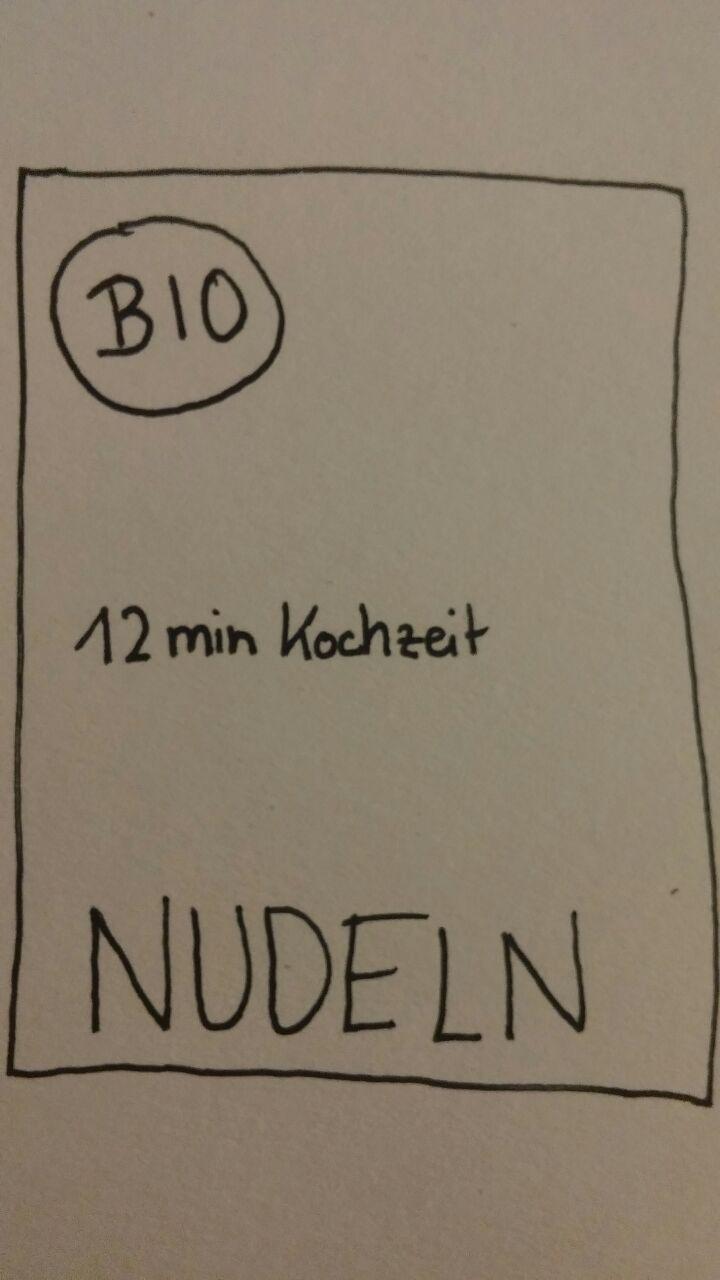 BIO
12 min Kochzeit
NUDELN